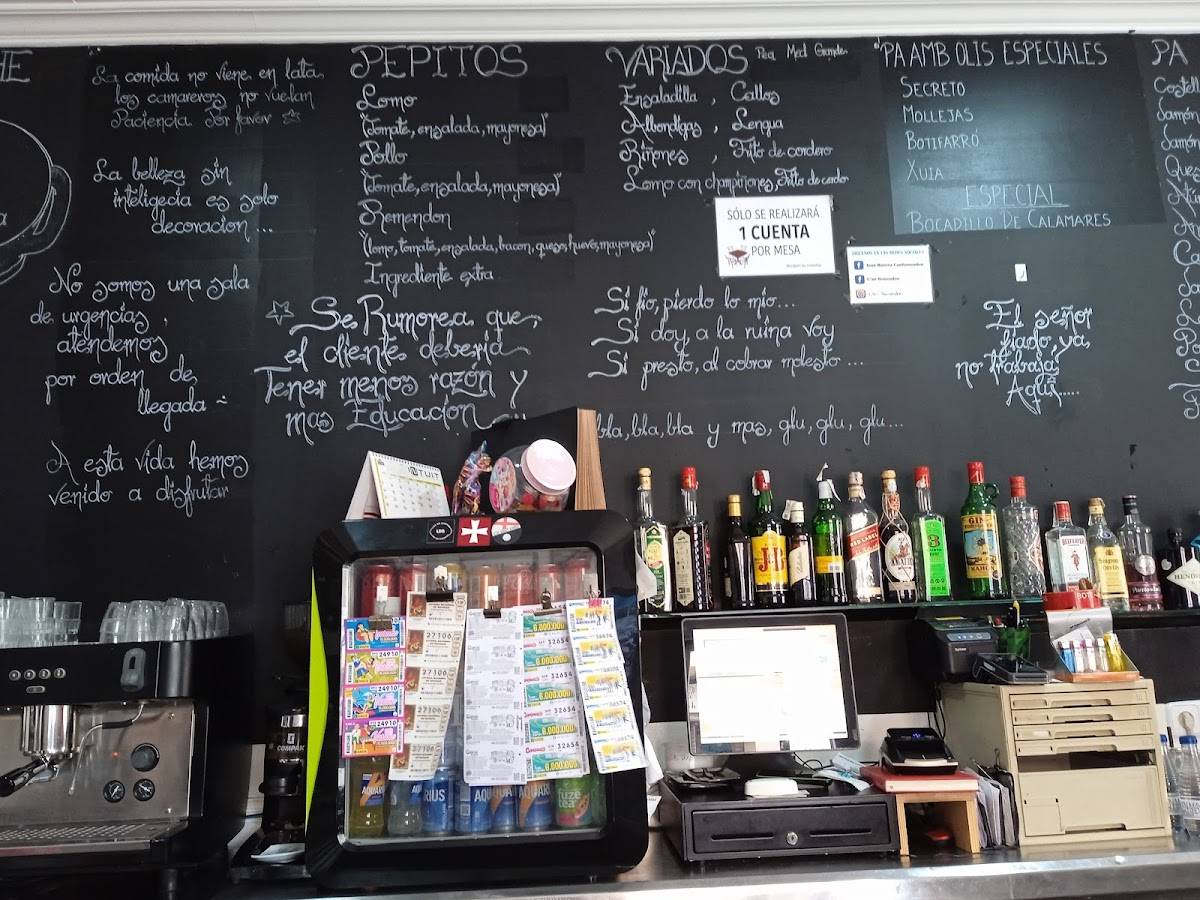 HE
La comida no viene en lata
los camareros no vuelan
Paciencia Por favor
La belleza sin
inteligecia es solo
decoracion ...
No somos una sala
de urgencias,
atendemos
por orden de
llegada
A esta vida hemos
venido a disfrutar
PEPITOS
Lomo
"(Tomate, ensalada, mayonesa)"
Pollo
"(Tomate, ensalada, mayonesa)"
Remendon
"(lomo, tomate, ensalada, bacon, queso, huevo, mayonesa)"
Ingrediente extra
Se Rumorea que,
el cliente deberia
Tener menos razón y
mas Educacion ...
VARIADOS Peq Med Grande
Ensaladilla , Callos
Albondigas , Lengua
Riñones , Frito de cordero
Lomo con champiñones, Frito de cerdo
SÓLO SE REALIZARÁ
1 CUENTA
POR MESA
Si fio, pierdo lo mio...
Si doy, a la ruina voy
Si presto, al cobrar molesto ...
bla, bla, bla y mas, glu, glu, glu...
"PA AMB OLIS ESPECIALES
SECRETO
MOLLEJAS
BOTIFARRÓ
XUIA
ESPECIAL
BOCADILLO DE CALAMARES
El señor
fiado, ya,
no trabaja
Aqui.....
PA
Costell
Jamón
Jamón
Ques
INTUIT
24910
24910
24910
24910
27106
27106
27106
27106
27106
32654
6.000.000
32654
6.000.000
32654
6.000.000
32654
6.000.000
32654
6.000.000
AQUARIUS
fuze tea
COMPAK
J&B
RED LABEL
GIN
MAHON
BEEFEATER
HENDRICK'S